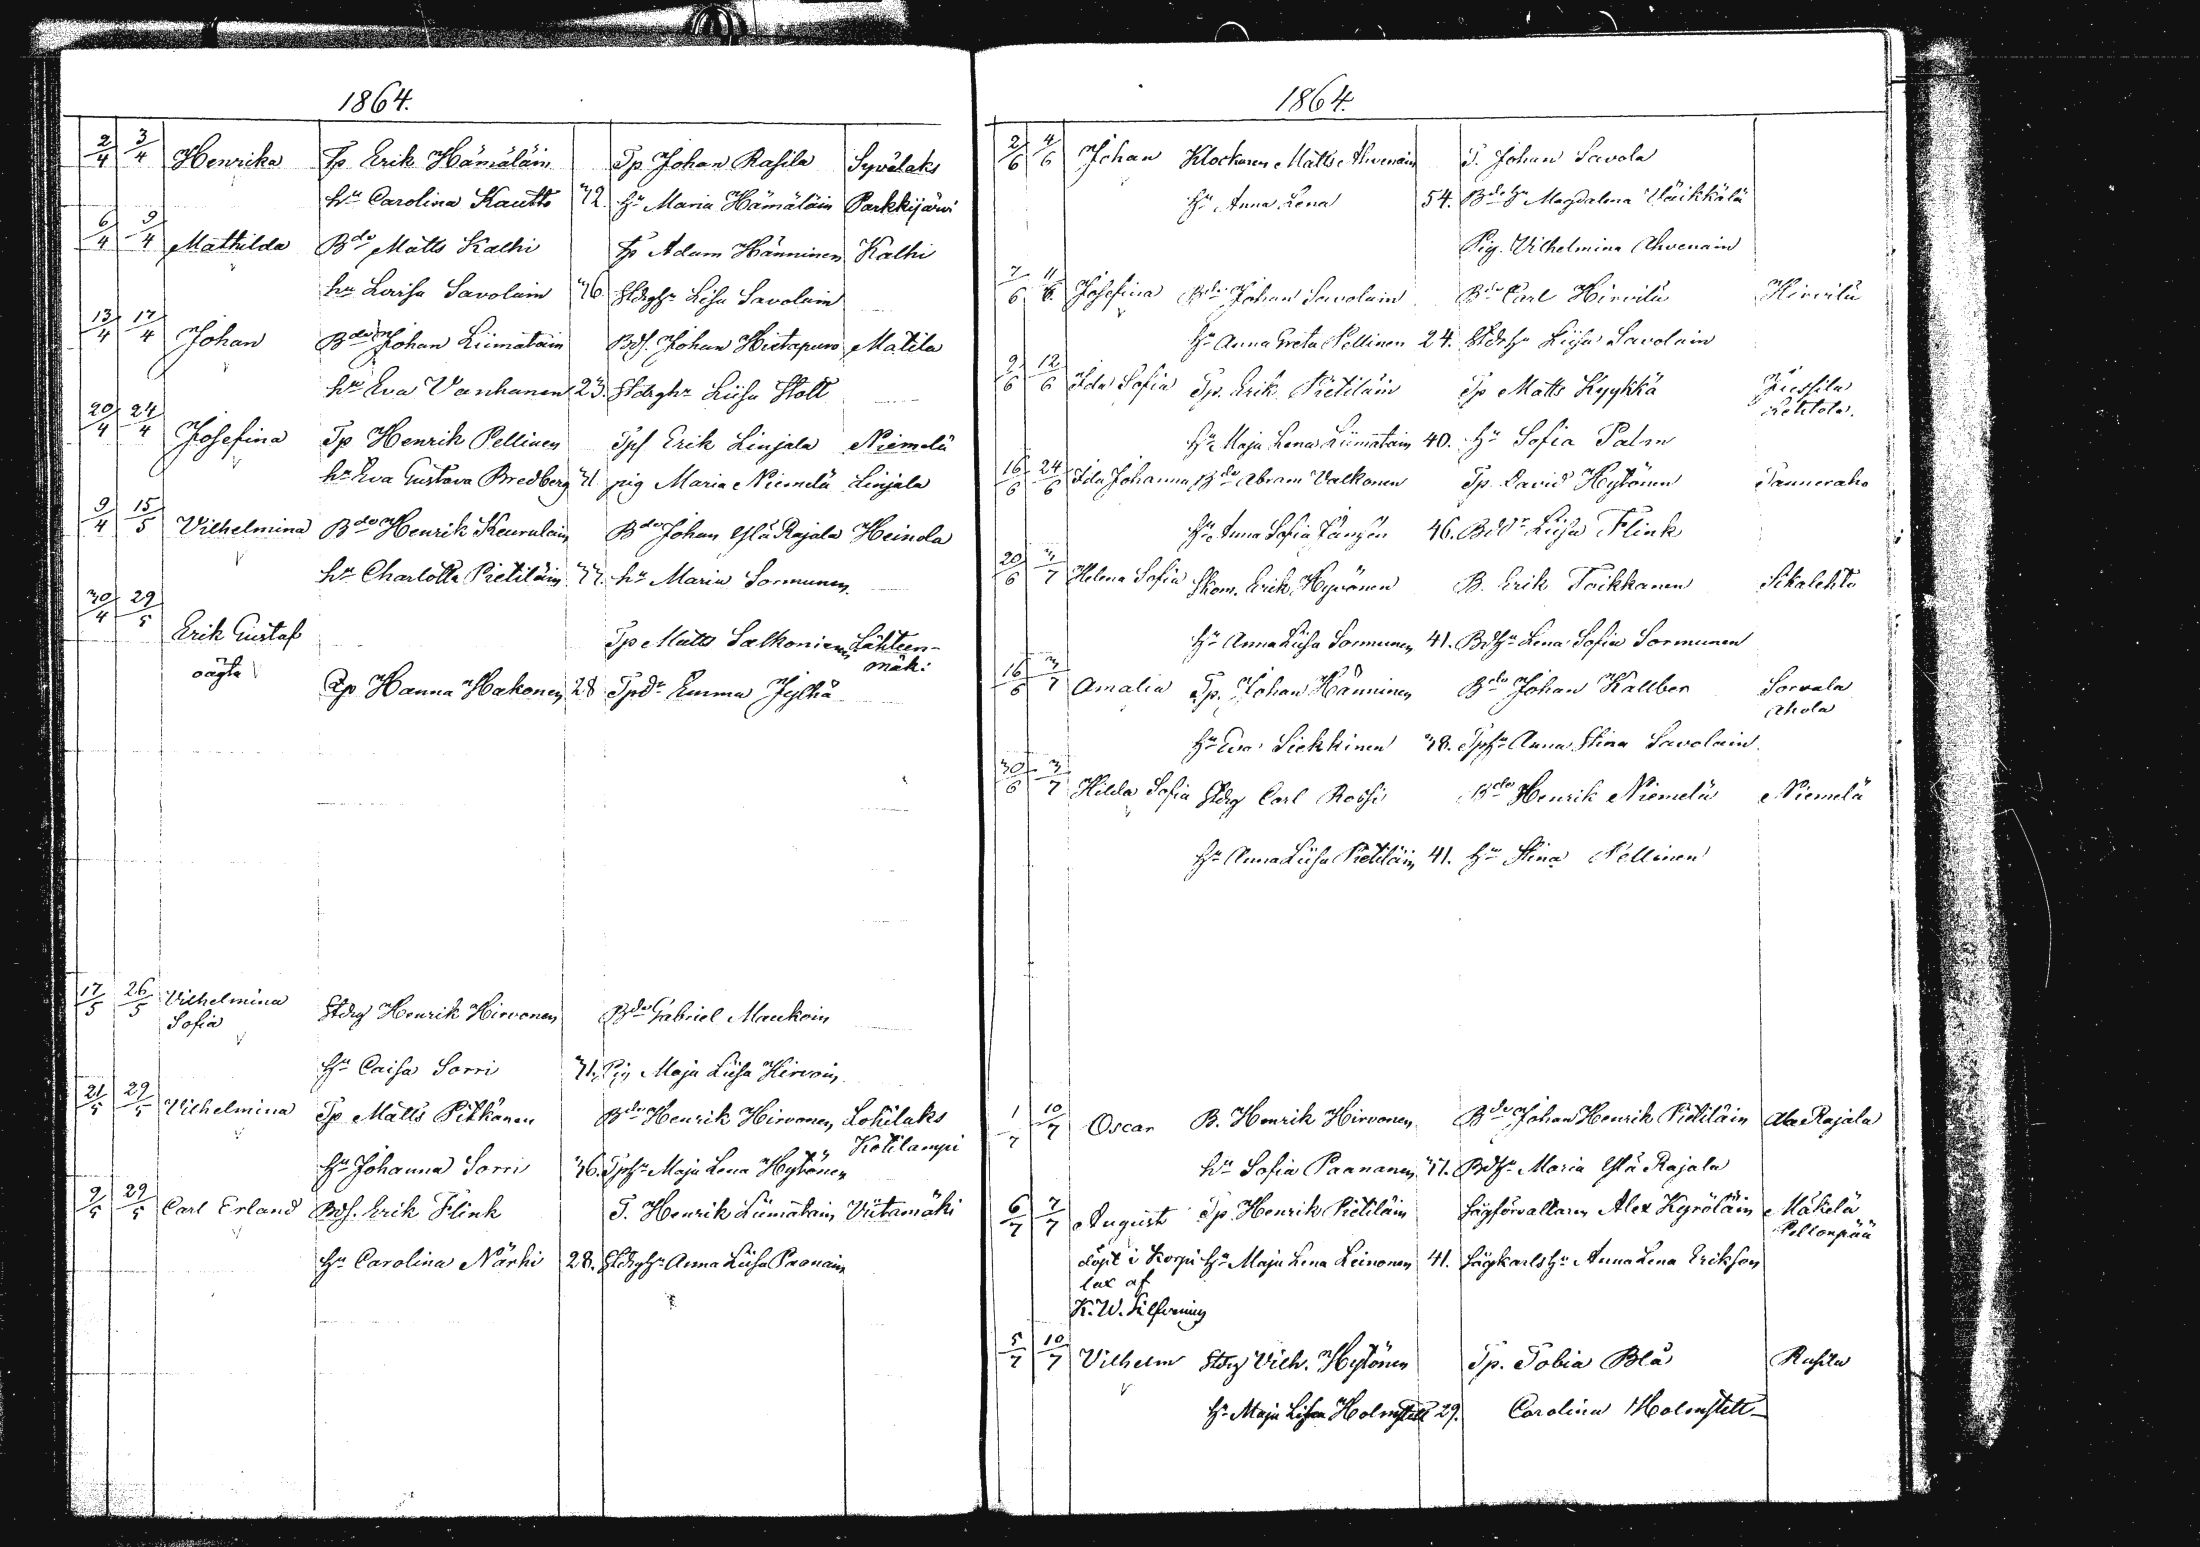 1864.
2/4 3/4 Henrika Tp Erik Hämäläin Tp Johan Rasila Syvälaks
hu Carolina Kautto 32. Hu Maria Hämäläin Parkkijärvi
6/4 9/4 Mathilda Bde Matts Kalhi Tp Adam Hänninen Kalhi
hu Lovisa Savolain 36 Stdrghu Lisa Savolain
13/4 17/4 Johan Bde Johan Liimatain Bds. Johan Hietapuro Matila
hu Eva Vanhanen 23. Stdrghr Liisa Stolt
20/4 24/4 Josefina Tp Henrik Pellinen Tps Erik Linjala Niemelä
hu Eva Gustava Bredberg 31 pig Maria Niemelä Linjala
9/4 15/5 Vilhelmina Bde Henrik Keurulain Bde Johan Ylä Rajala Heinola
hu Charlotta Pietiläin 37. hu Maria Sormunen
30/4 29/5 Erik Gustaf Tp Matts Salkonien Lähteen-
oägta mäki
Tp Hanna Hakonen 28 Tpdr Emma Jylhä
17/5 26/5 Vilhelmina Stdrg Henrik Hirvonen Bde Gabriel Maukoin
Sofia
Hu Caisa Sorri 31. Pig Maja Liisa Hirvoin
21/5 29/5 Vilhelmina Tp Matts Pitkänen Bde Henrik Hirvonen Lohilaks
Kotilampi
Hu Johanna Sorri 36. Tphu Maja Lena Hytönen
9/5 29/5 Carl Erland Bds. Erik Flink T. Henrik Liimatain Viitamäki
Hu Carolina Närhi 28. Stdrghu Anna Liisa Paonain
1864.
2/6 4/6 Johan Klockaren Matts Ahvenain T. Johan Savola
Hu Anna Lena 54. Bde Hu Magdalena Väikkälä
Pig. Vilhelmina Ahvenain
7/6 11/6 Josefina Bde Johan Savolain Bde Carl Hirvilä Hirvilä
Hu Anna Greta Pellinen 24. Stdrhu Liisa Savolain
9/6 12/6 Ida Sofia Tp. Erik Pietiläin Tp Matts Kyykkä
Lehtola.
Hu Maja Lena Liimatain 40. Hu Sofia Palm
16/6 24/6 Ida Johanna Bde Abram Valkonen Tp. David Hytönen Tanneraho
Hu Anna Sofia 46. Bddr Liisa Flink
20/6 3/7 Helena Sofia Skom. Erik Hyvönen B. Erik Toikkanen Sikalehto
Hu Anna Liisa Sormunen 41. Bdhu Lena Sofia Sormunen
16/6 3/7 Amalia Tp. Johan Hänninen Bde Johan Kallber Sorvala
Ahola
Hu Eva Siekkinen 38. Tphu Anna Stina Savolain
30/6 3/7 Hilda Sofia Stdrg Carl Rossi Bde Henrik Niemelä Niemelä
Hu Anna Liisa Pietiläin 41. Hu Stina Pellinen
1/7 10/7 Oscar B. Henrik Hirvonen Bde Johan Henrik Pietiläin Ala Rajala
hu Sofia Paananen 37. Bdhu Maria Ylä Rajala
6/7 7/7 August Tp. Henrik Pietiläin Sågförvaltaren Alex Kyröläin Mäkelä
Pellonpää
döpt i Korpi Hu Maja Lena Leinonen 41. Sågkarlshu Anna Lena Erikson
lax af
K. W. Silfvening
5/7 10/7 Vilhelm Stdrg Vilh. Hytönen Tp. Tobia Blå Rasila
Hu Maja Lisa Holmstett 29. Carolina Holmstett